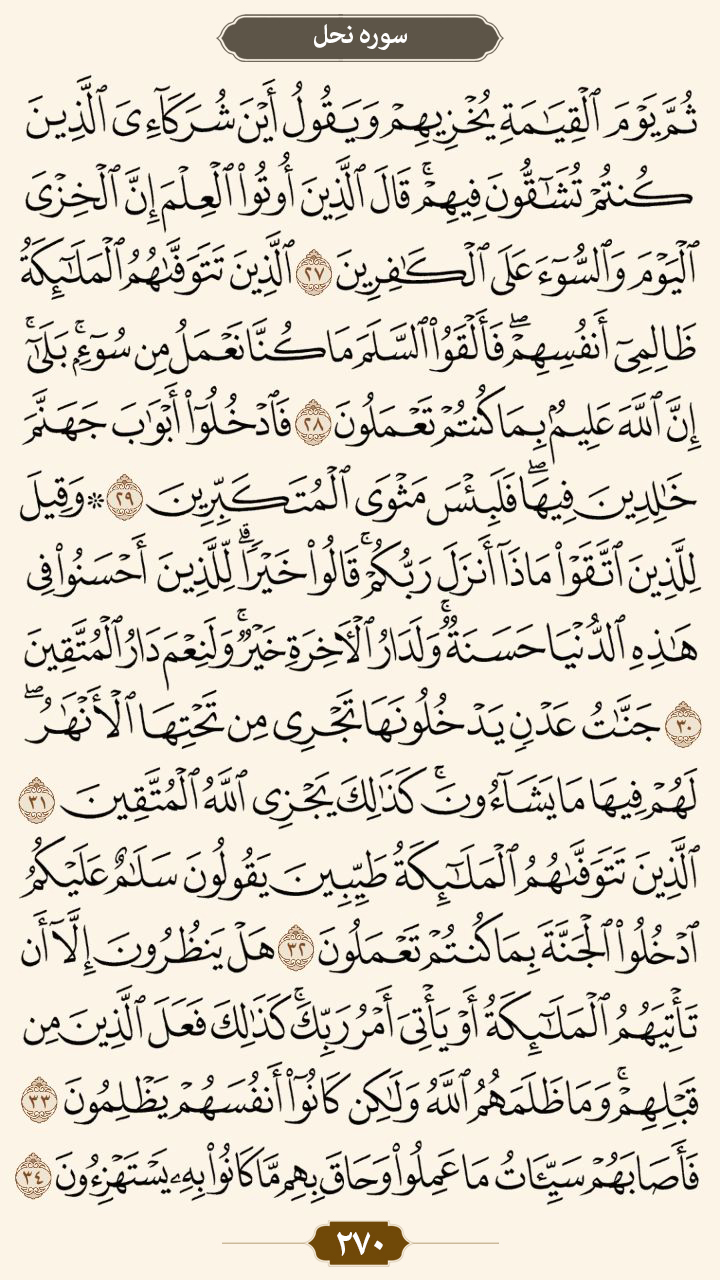 سوره نحل
ثُمَّ يَوْمَ ٱلْقِيَٰمَةِ يُخْزِيهِمْ وَيَقُولُ أَيْنَ شُرَكَآءِىَ ٱلَّذِينَ
كُنتُمْ تُشَٰٓقُّونَ فِيهِمْ ۚ قَالَ ٱلَّذِينَ أُوتُوا۟ ٱلْعِلْمَ إِنَّ ٱلْخِزْىَ
ٱلْيَوْمَ وَٱلسُّوٓءَ عَلَى ٱلْكَٰفِرِينَ ٢٧ ٱلَّذِينَ تَتَوَفَّىٰهُمُ ٱلْمَلَٰٓئِكَةُ
ظَالِمِىٓ أَنفُسِهِمْ ۖ فَأَلْقَوُا۟ ٱلسَّلَمَ مَا كُنَّا نَعْمَلُ مِن سُوٓءٍۭ ۚ بَلَىٰٓ ۚ
إِنَّ ٱللَّهَ عَلِيمٌۢ بِمَا كُنتُمْ تَعْمَلُونَ ٢٨ فَٱدْخُلُوٓا۟ أَبْوَٰبَ جَهَنَّمَ
خَٰلِدِينَ فِيهَا ۖ فَلَبِئْسَ مَثْوَى ٱلْمُتَكَبِّرِينَ ٢٩ ۞ وَقِيلَ
لِلَّذِينَ ٱتَّقَوْا۟ مَاذَآ أَنزَلَ رَبُّكُمْ ۚ قَالُوا۟ خَيْرًا ۗ لِّلَّذِينَ أَحْسَنُوا۟ فِى
هَٰذِهِ ٱلدُّنْيَا حَسَنَةٌ ۚ وَلَدَارُ ٱلْءَاخِرَةِ خَيْرٌ ۚ وَلَنِعْمَ دَارُ ٱلْمُتَّقِينَ
٣٠ جَنَّٰتُ عَدْنٍ يَدْخُلُونَهَا تَجْرِى مِن تَحْتِهَا ٱلْأَنْهَٰرُ ۖ
لَهُمْ فِيهَا مَا يَشَآءُونَ ۚ كَذَٰلِكَ يَجْزِى ٱللَّهُ ٱلْمُتَّقِينَ ٣١
ٱلَّذِينَ تَتَوَفَّىٰهُمُ ٱلْمَلَٰٓئِكَةُ طَيِّبِينَ يَقُولُونَ سَلَٰمٌ عَلَيْكُمُ
ٱدْخُلُوا۟ ٱلْجَنَّةَ بِمَا كُنتُمْ تَعْمَلُونَ ٣٢ هَلْ يَنظُرُونَ إِلَّآ أَن
تَأْتِيَهُمُ ٱلْمَلَٰٓئِكَةُ أَوْ يَأْتِىَ أَمْرُ رَبِّكَ ۚ كَذَٰلِكَ فَعَلَ ٱلَّذِينَ مِن
قَبْلِهِمْ ۚ وَمَا ظَلَمَهُمُ ٱللَّهُ وَلَٰكِن كَانُوٓا۟ أَنفُسَهُمْ يَظْلِمُونَ ٣٣
فَأَصَابَهُمْ سَيِّـَٔاتُ مَا عَمِلُوا۟ وَحَاقَ بِهِم مَّا كَانُوا۟ بِهِۦ يَسْتَهْزِءُونَ ٣٤
٢٧٠